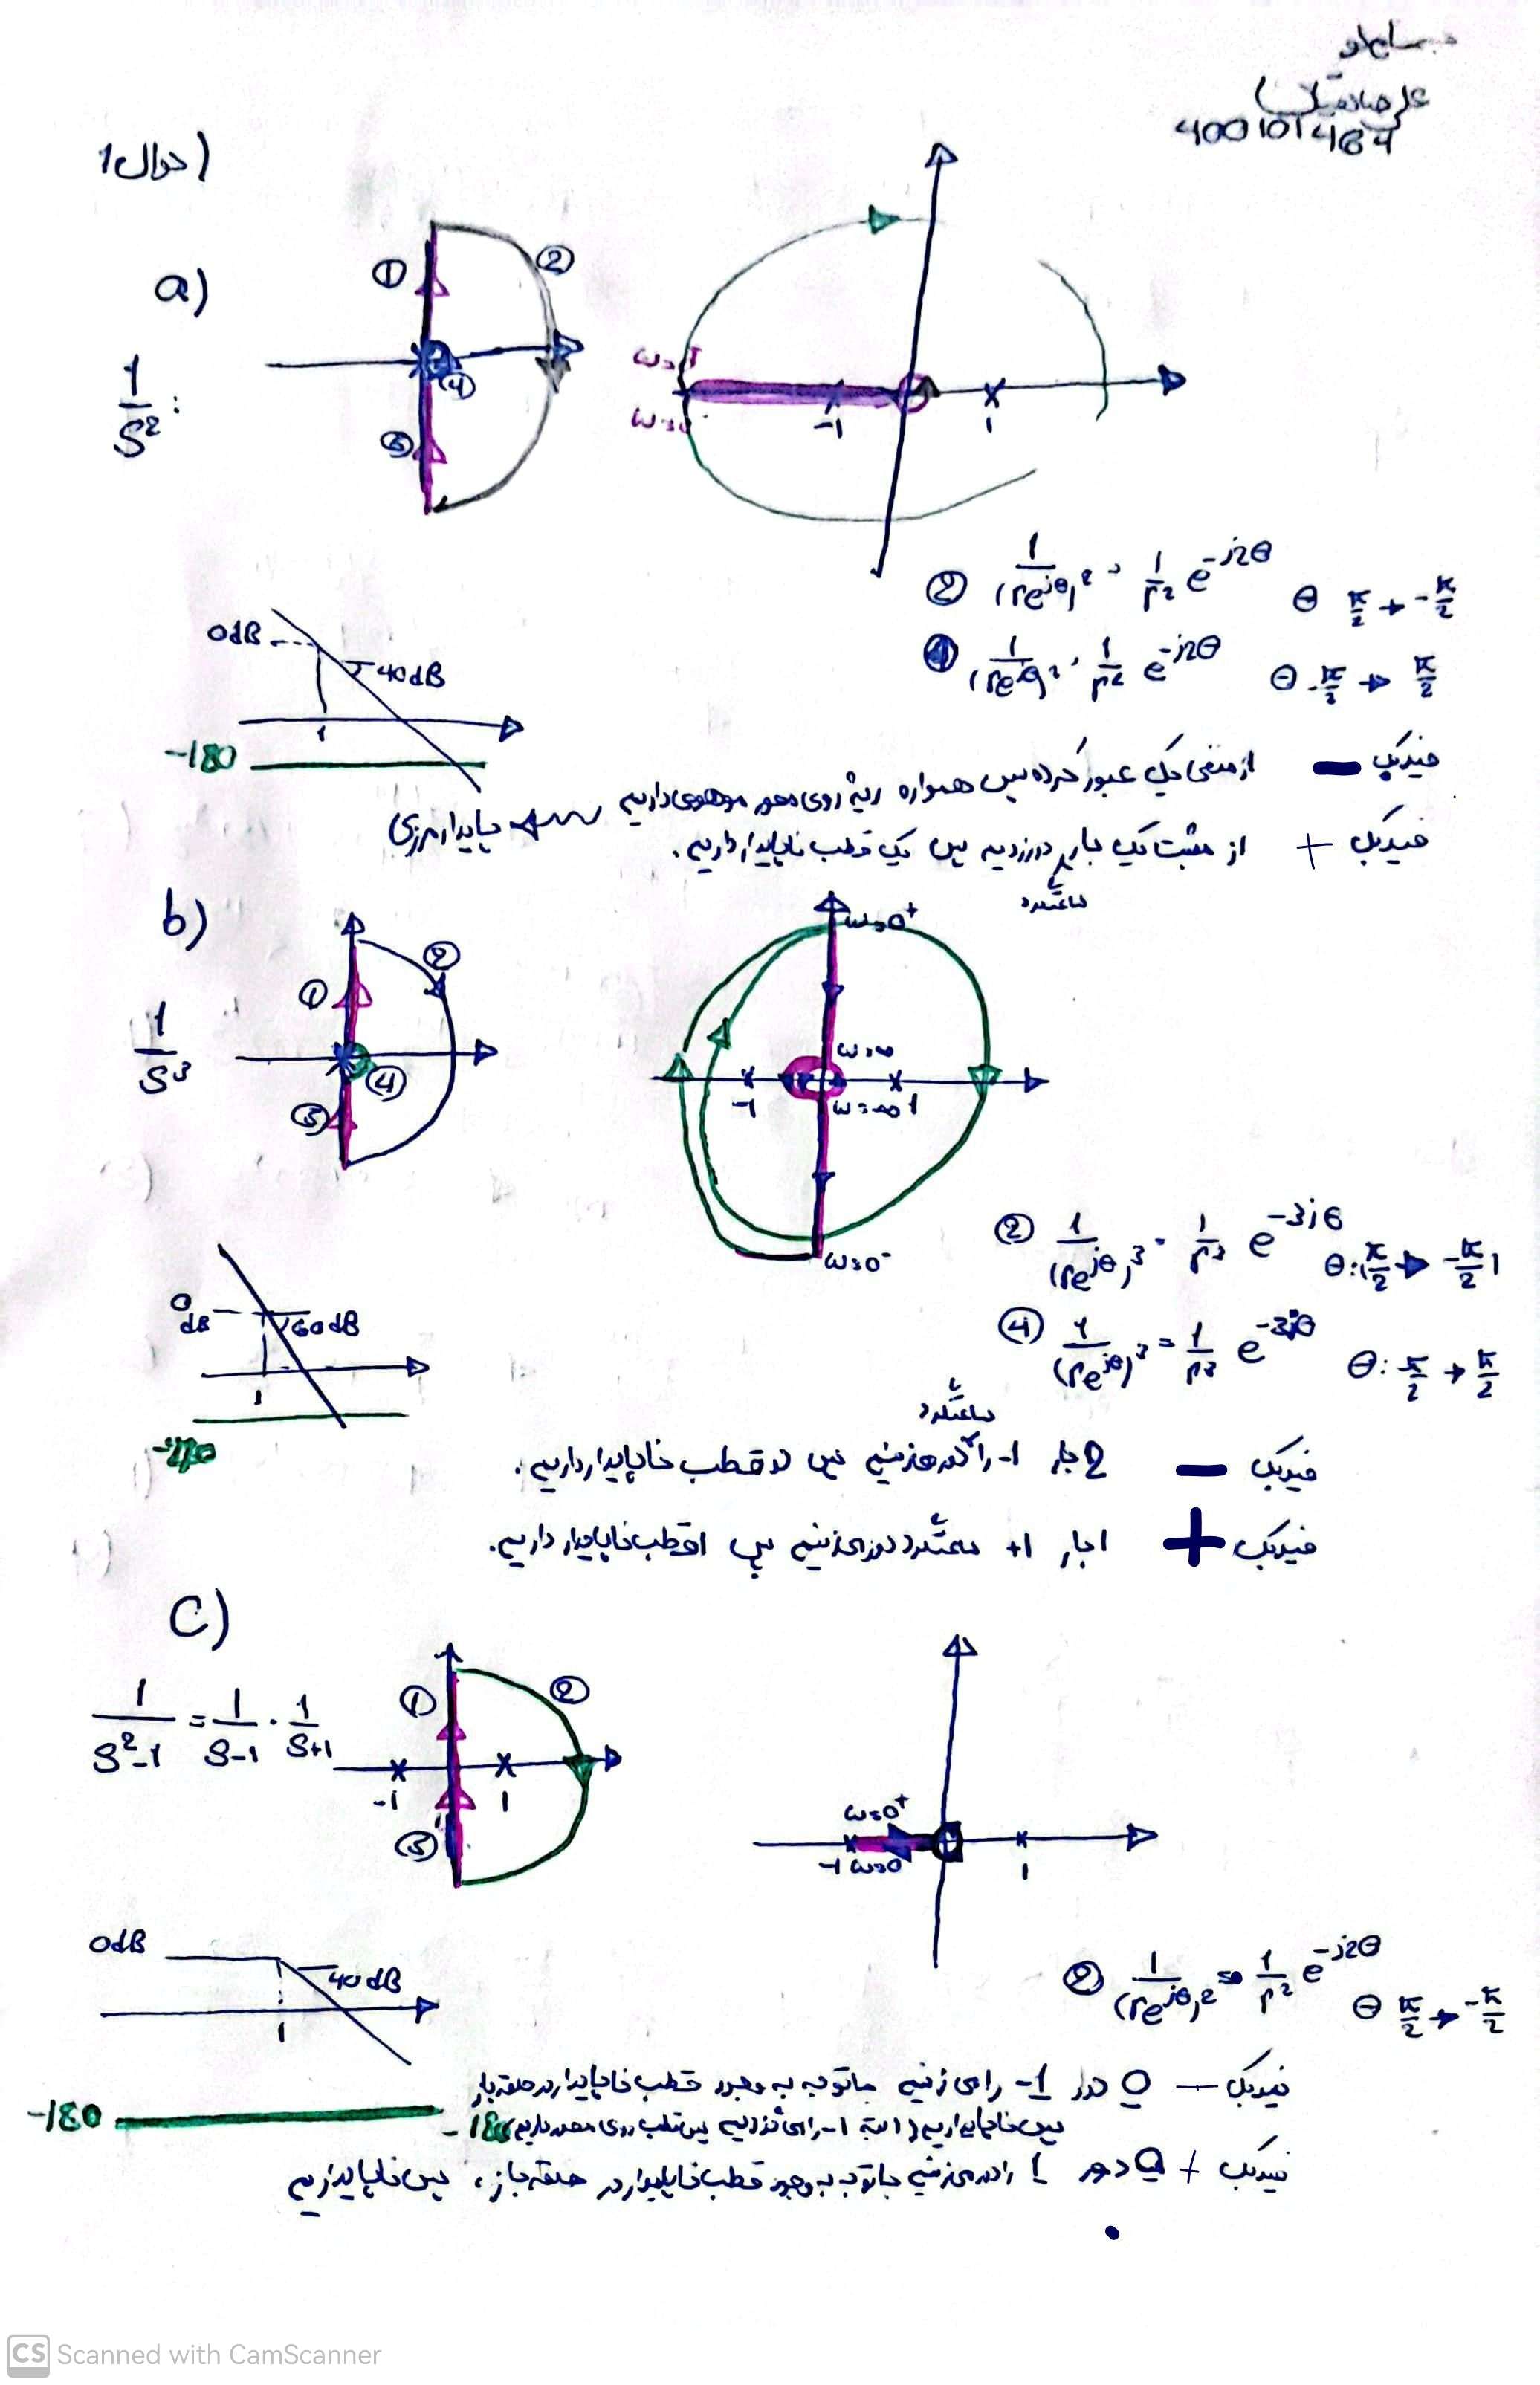 علی صادقیان
400101464
سوال 1)
a)
1/S²:
① ② ③ ④
ω=0⁺
ω=0⁻
-1 1
② 1/(re^jθ)² = 1/r² e^-j2θ θ π/2 → -π/2
④ 1/(re^jθ)² = 1/r² e^-j2θ θ -π/2 → π/2
0dB
40dB
1
-180
فیدبک - از منفی یک عبور کرده پس همواره ریشه روی محور موهومی داریم پایدار مرزی
فیدبک + از مثبت یک بار دور زدیم پس یک قطب ناپایدار داریم.
ساعتگرد
b)
1/S³
① ② ③ ④
ω=0⁺
ω=∞
ω=-∞
-1 1
ω=0⁻
② 1/(re^jθ)³ = 1/r³ e^-3jθ θ: π/2 → -π/2
④ 1/(re^jθ)³ = 1/r³ e^-3jθ θ: -π/2 → π/2
0 dB
60dB
1
ساعتگرد
فیدبک - 2 بار -1 را دور می‌زنیم پس دو قطب ناپایدار داریم.
فیدبک + 1 بار +1 ساعتگرد دور می‌زنیم پس 1 قطب ناپایدار داریم.
C)
1/(S²-1) = 1/(S-1) · 1/(S+1)
① ② ③
-1 1
ω=0⁺
-1 ω=0⁻
1
② 1/(re^jθ)² = 1/r² e^-j2θ θ π/2 → -π/2
0dB
40dB
1
-180
فیدبک - 0 دور -1 را می‌زنیم با توجه به وجود قطب ناپایدار در حلقه باز
پس ناپایداریم (البته -1 را می‌گذریم پس قطب روی محور داریم)
فیدبک + 0 دور 1 را دور می‌زنیم با توجه به وجود قطب ناپایدار در حلقه باز، پس ناپایداریم
CS Scanned with CamScanner